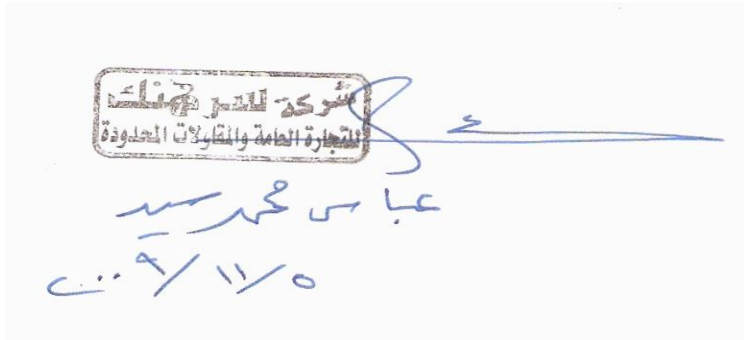 شركة للتجارة العامة والمقاولات المحدودة
عباس محمد سيد
٢٠٠٩/١١/٥